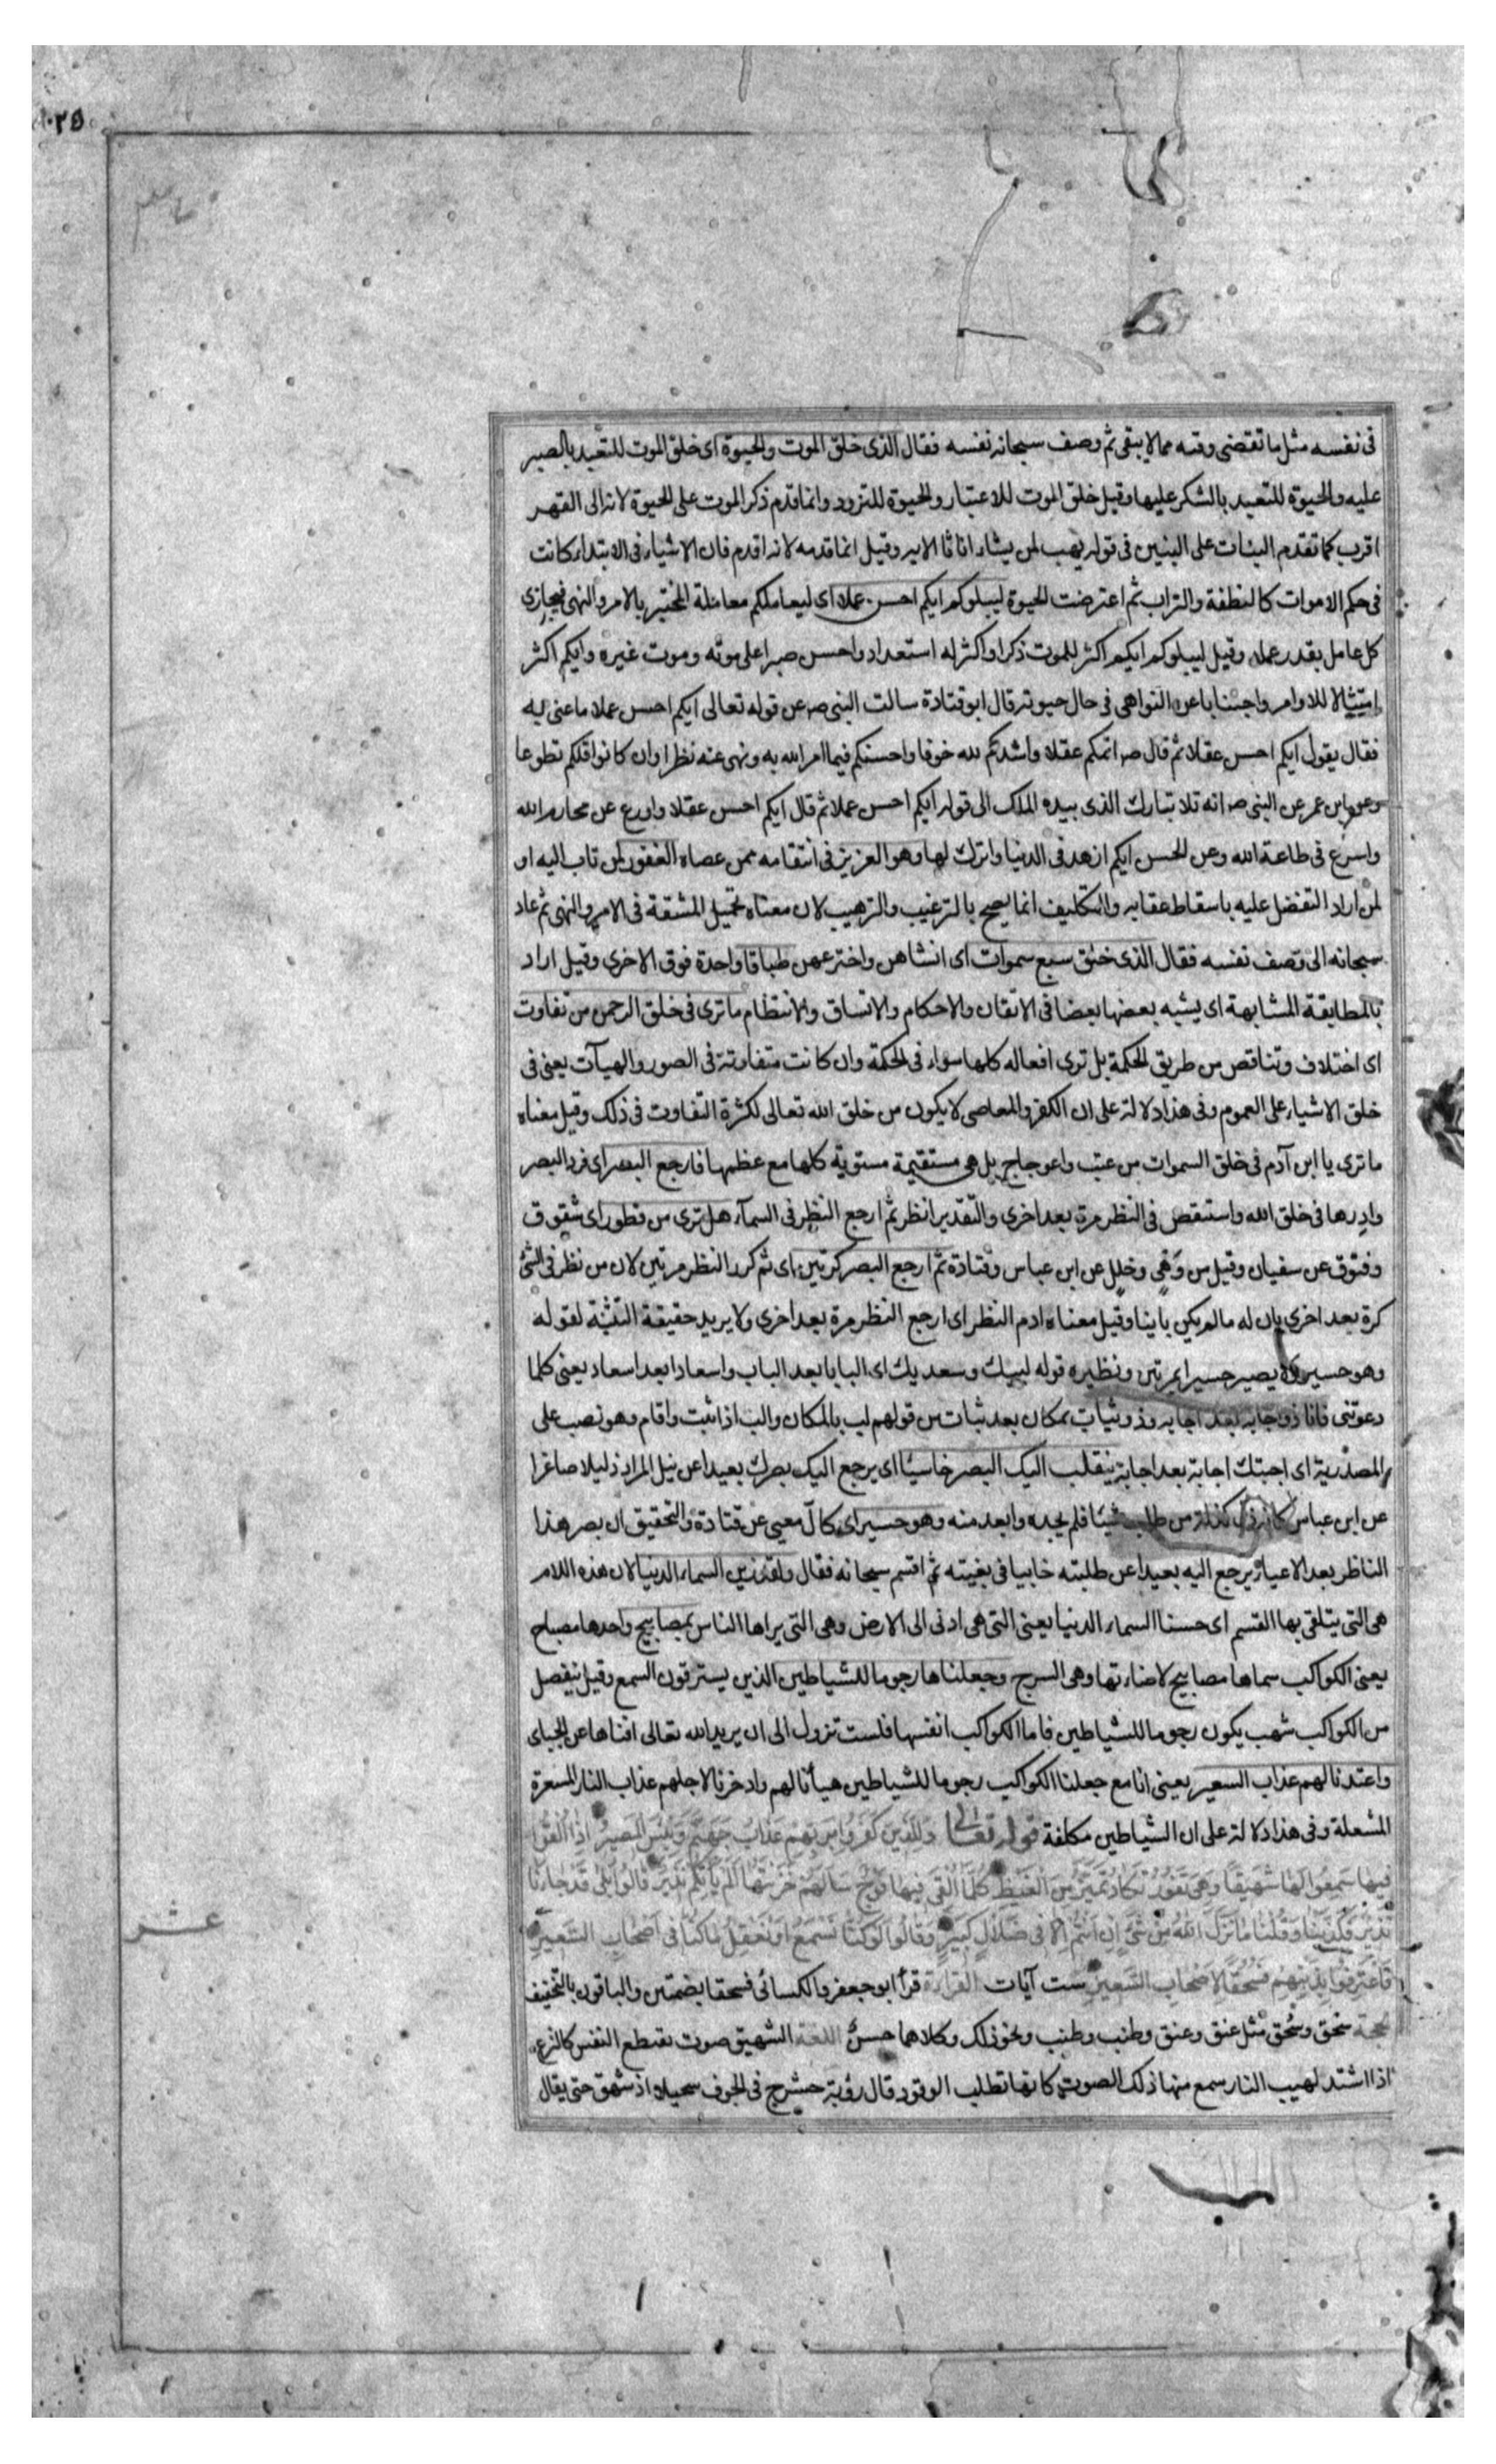 ٢٥
فى نفسه مثل ما تقضى وقته مما لا يبقى ثم وصف سبحانه نفسه فقال الذى خلق الموت والحيوة اى خلق الموت للتعبد بالصبر
عليه والحيوة للتعبد بالشكر عليها وقيل خلق الموت للاعتبار والحيوة للتزود وانما قدم ذكر الموت على الحيوة لانه الى القهر
اقرب كما تقدم البنات على البنين فى قوله يهب لمن يشاء اناثا الايه وقيل انما قدمه لانه اقدم فان الاشياء فى الابتداء كانت
فى حكم الاموات كالنطفة والتراب ثم اعترضت الحيوة ليبلوكم ايكم احسن عملا اى ليعاملكم معاملة المختبر بالامر والنهى فيجازى
كل عامل بقدر عمله وقيل ليبلوكم ايكم اكثر للموت ذكرا واكثر له استعداد واحسن صبرا على موته وموت غيره وايكم اكثر
امتثالا للاوامر واجتنابا عن النواهى فى حال حيوته قال ابو قتادة سالت النبى ص عن قوله تعالى ايكم احسن عملا ما عنى به
فقال يقول ايكم احسن عقلا ثم قال ص اتمكم عقلا واشدكم لله خوفا واحسنكم فيما امر الله به ونهى عنه نظرا وان كانوا اقلكم تطوعا
وعن ابن عمر عن النبى ص انه تلا تبارك الذى بيده الملك الى قوله ايكم احسن عملا ثم قال ايكم احسن عقلا واورع عن محارم الله
واسرع فى طاعة الله وعن الحسن ايكم ازهد فى الدنيا واترك لها وهو العزيز فى انتقامه ممن عصاه الغفور لمن تاب اليه او
لمن اراد التفضل عليه باسقاط عقابه والتكليف انما يصح بالترغيب والترهيب لان معناه تحميل المشقة فى الامر والنهى ثم عاد
سبحانه الى وصف نفسه فقال الذى خلق سبع سموات اى انشاهن واخترعهن طباقا واحدة فوق الاخرى وقيل اراد
بالمطابقة المشابهة اى يشبه بعضها بعضا فى الاتقان والاحكام والاتساق والانتظام ما ترى فى خلق الرحمن من تفاوت
اى اختلاف وتناقص من طريق الحكمة بل ترى افعاله كلها سواء فى الحكمة وان كانت متفاوتة فى الصور والهيآت يعنى فى
خلق الاشياء على العموم وفى هذا دلالة على ان الكفر والمعاصى لا يكون من خلق الله تعالى لكثرة التفاوت فى ذلك وقيل معناه
ما ترى يا ابن آدم فى خلق السموات من عتب واعوجاج بل هى مستقيمة مستوية كلها مع عظمها فارجع البصر اى فرد البصر
وادرها فى خلق الله واستقص فى النظر مرة بعد اخرى والتقدير انظر ثم ارجع النظر فى السمآء هل ترى من فطور اى شقوق
وفتوق عن سفيان وقيل من وهى وخلل عن ابن عباس وقتادة ثم ارجع البصر كرتين اى ثم كرر النظر مرتين لان من نظر فى الشئ
كرة بعد اخرى بان له ما لم يكن باينا وقيل معناه ادم النظر اى ارجع النظر مرة بعد اخرى ولا يريد حقيقة التثنية لقوله
وهو حسير ولا يصير حسيرا بمرتين ونظيره قوله لبيك وسعديك اى البابا بعد الباب واسعادا بعد اسعاد يعنى كلما
دعوتنى فانا ذو اجابة بعد اجابة وذو ثبات بمكان بعد ثبات من قولهم لب بالمكان والب اذا ثبت واقام وهو نصب على
المصدرية اى اجبتك اجابة بعد اجابة ينقلب اليك البصر خاسئا اى يرجع اليك بصرك بعيدا عن نيل المراد ذليلا صاغرا
عن ابن عباس كانه ذل كذلة من طلب شيئا فلم يجده وابعد منه وهو حسير اى كالّ معيى عن قتادة والتحقيق ان بصر هذا
الناظر بعد الاعياء يرجع اليه بعيدا عن طلبته خايبا فى بغيته ثم اقسم سبحانه فقال ولقد زين السماء الدنيا لان هذه اللام
هى التى يتلقى بها القسم اى حسنا السماء الدنيا يعنى التى هى ادنى الى الارض وهى التى يراها الناس بمصابيح واحدها مصباح
يعنى الكواكب سماها مصابيح لاضاءتها وهى السرج وجعلناها رجوما للشياطين الذين يسترقون السمع وقيل ينفصل
من الكواكب شهب يكون رجوما للشياطين فاما الكواكب انفسها فلست تزول الى ان يريد الله تعالى افناها عن الجباى
واعتدنا لهم عذاب السعير يعنى انا مع جعلنا الكواكب رجوما للشياطين هيأنا لهم وادخرنا لاجلهم عذاب النار المسعرة
المشعلة وفى هذا دلالة على ان الشياطين مكلفة قوله تعالى وَلِلَّذِينَ كَفَرُوا بِرَبِّهِمْ عَذَابُ جَهَنَّمَ وَبِئْسَ الْمَصِيرُ اِذَا اُلْقُوا
فِيهَا سَمِعُوا لَهَا شَهِيقًا وَهِيَ تَفُورُ تَكَادُ تَمَيَّزُ مِنَ الْغَيْظِ كُلَّمَا اُلْقِىَ فِيهَا فَوْجٌ سَأَلَهُمْ خَزَنَتُهَا اَلَمْ يَأْتِكُمْ نَذِيرٌ قَالُوا بَلَى قَدْ جَاءَنَا
نَذِيرٌ فَكَذَّبْنَا وَقُلْنَا مَا نَزَّلَ اللهُ مِنْ شَيْءٍ اِنْ اَنْتُمْ اِلَّا فِى ضَلَالٍ كَبِيرٍ وَقَالُوا لَوْ كُنَّا نَسْمَعُ اَوْ نَعْقِلُ مَا كُنَّا فِى اَصْحَابِ السَّعِيرِ
عشر
فَاعْتَرَفُوا بِذَنْبِهِمْ فَسُحْقًا لِاَصْحَابِ السَّعِيرِ ست آيات القراءة قرأ ابو جعفر والكسائى فسحقا بضمتين والباقون بالتخفيف
الحجة سحق وسُحُق مثل عنق وعنق وطنب وطنب ونحو ذلك وكلاهما حسنٌ اللغة الشهيق صوت تقطع النفس كالنزع
اذا اشتد لهيب النار سمع منها ذلك الصوت كانها تطلب الوقود قال رؤبة حشرج فى الجوف سحيلا اذ شهق حتى يقال